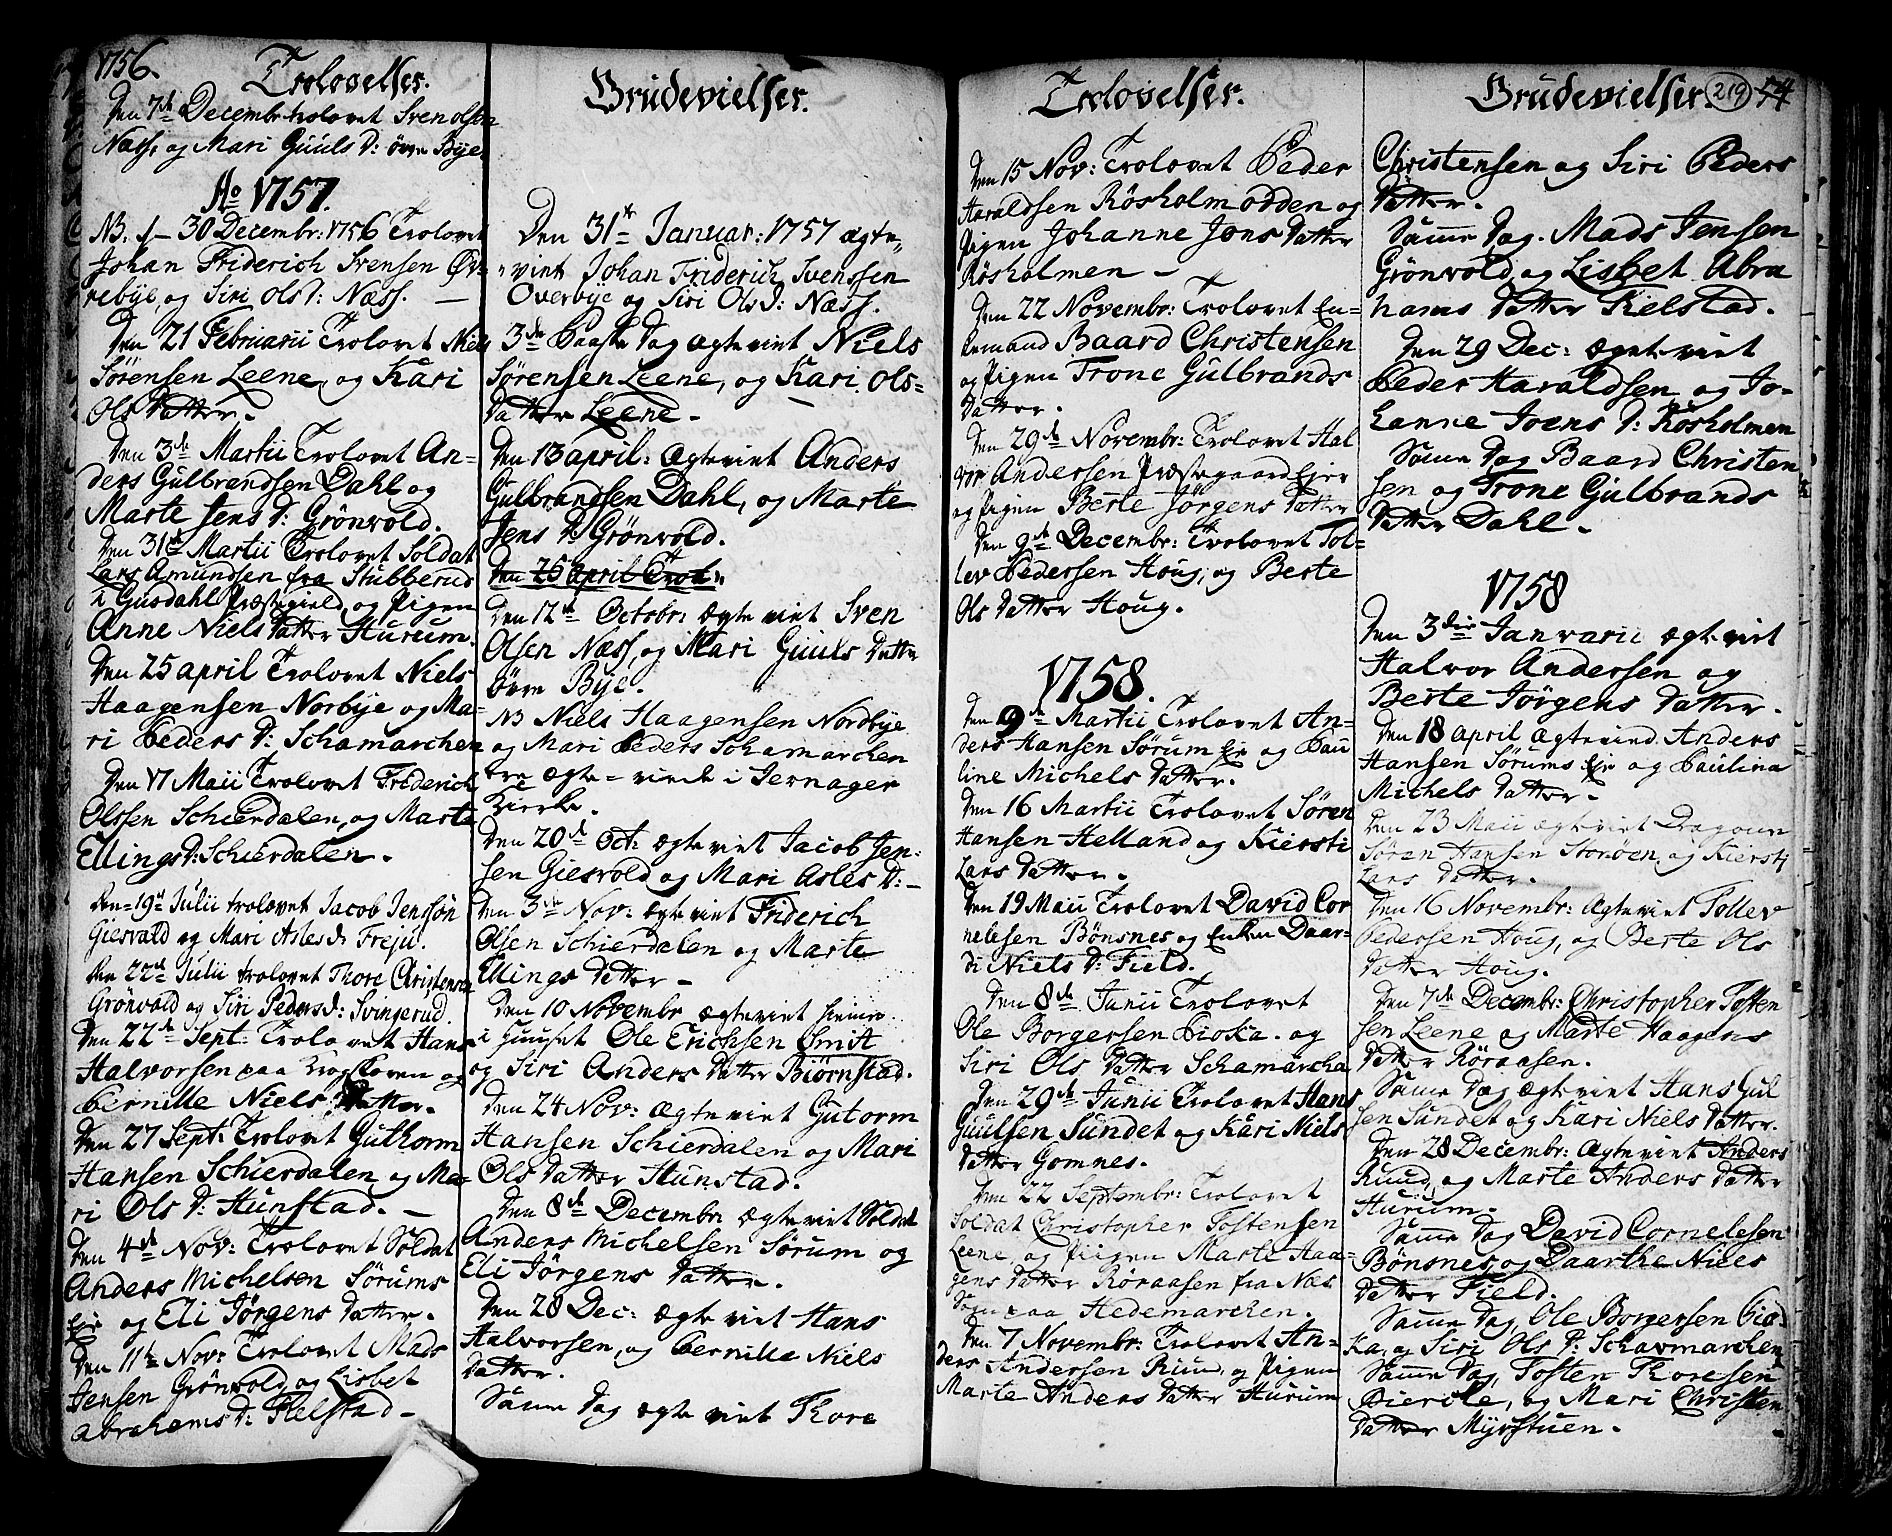 1756.
Trolovelser.
Den 7de Decembr trolovet Sven olsen
Næss, og Mari Guuls D: øvre Bÿe.
Ao 1757.
N3. 1— 30 Decembr: 1756 Trolovet
Johan Friderich Svensen Øv-
rebÿe, og Siri Ols D: Næss. —
Den 21 Februarii Trolovet Niels
Sörensen Leene, og Kari
Ols Datter.
Den 3de Martii Trolovet An-
ders Gulbrandsen Dahl og
Marte Jens D: Grönvold.
Den 31te Martii Trolovet Soldat
Lars Amundsen fra Stubberud
i Gusdahl Præstegield, og Pigen
Anne Niels Datter Hurum.
Den 25 april Trolovet Niels
Haagensen Norbÿe og Ma-
ri Peders D: Schamarchen
Den 17 Maii Trolovet Friderich
Olssen Schierdalen, og Marte
Ellings D: Schierdalen.
Den 19de Julii trolovet Jacob Jenssön
Giesvald og Mari Asles D: Freju.
Den 22de Julii trolovet Thore Christensen
Grönvald og Siri Peders d: Svingerud.
Den 22de Sept: Trolovet Hans
Halvorsen paa Krogskoven og
Pernille Niels Datter.
Den 27 Sept: Trolovet Guthorm
Hansen Schierdalen og Ma-
ri Ols D: Hunstad. —
Den 4de Nov: Trolovet Soldat
Anders Michelsen Sörums
Eje og Eli Jörgens Datter.
Den 11te Nov: Trolovet Mads
Jensen Grönvold og Lisbet
Abrahams D: Fielstad —
Brudevielser.
Den 31te Januar: 1757 ægte-
viet Johan Friderich Svenssen
Overbÿe og Siri Ols D: Næss.
3de Paaske Dag ægteviet Niels
Sörensen Leene, og Kari Ols-
Datter Leene.
Den 13 april: ægteviet Anders
Gulbrandsen Dahl, og Marte
Jens D: Grönvold.
Den 25 april Trol-
Den 12te Octobr: ægteviet Sven
Olsen Næss, og Mari Guuls Datter
övre Bÿe.
NB Niels Haagensen Nordbÿe
og Mari Peders Schamarchen
ere ægte-viede i Jernager
Kirke.
Den 20de Oct: ægteviet Jacob Jen-
sen Giesvold og Mari Asles D: —
Den 3de Nov: ægteviet Friderich
Olsen Schierdalen og Marte
Ellings Datter —
Den 10 Novembr ægteviet hieme
i Huuset Ole Erichsen Smit
og Siri Anders Datter Biörnstad.
Den 24 Nov: ægteviet Gutorm
Hansen Schierdalen og Mari
Ols Datter Hunstad.
Den 8de Decembr ægteviet Soldat
Anders Michelsen Sørum og
Eli Jörgens Datter.
Den 28 Dec: ægteviet Hans
Halvorsen, og Pernille Niels
Datter.
Samme Dag ægteviet Thore
Trolovelser.
Den 15 Nov: Trolovet Peder
Haraldsen Rösholmodden og
Pigen Johanne Jons Datter
Rösholmen —
Den 22 Novembr: Trolovet En-
kemand Baard Christensen
og Pigen Trone Gulbrands
Datter.
Den 29de Novembr: Trolovet Hal
vor Andersen Præstegaard Ejer
og Pigen Berte Jörgens Datter
Den 9de Decembr: Trolovet Tol-
lev Pedersen Houg, og Berte
Ols Datter Houg.
1758.
Den 9de Martii Trolovet An-
ders Hansen Sörum Eje og Pau
line Michels Datter.
Den 16 Martii Trolovet Sören
Hansen Helland og Kiersti
Lars Datter.
Den 19 Maii Trolovet David Cor
nelesen Bönsnes og Enken Daar-
di Niels D: Field.
Den 8de Junii Trolovet
Ole Borgersen Pioka. og
Siri Ols Datter Schamarcha
Den 29de Junii Trolovet Hans
Guulsen Sundet og Kari Niels
Datter Gomnes.
Den 22 Septembr: Trolovet
Soldat Christopher Tostensen
Leene og Piigen Marte Haa-
gens Datter Röraasen fra Næs
Sogn paa Hedemarchen.
Den 7 Novembr: Trolovet An-
ders Andersen Ruud, og Pigen
Marte Anders Datter Hurum
Brudevielser. 219 54
Christensen og Siri Peders
Datter.
Samme Dag. Mads Jensen
Grönvold og Lisbet Abra
hams Datter Fielstad.
Den 29 Dec: ægteviet
Peder Haraldsen og Jo-
hanne Joens D: Rösholmen
Samme Dag Baard Christen
sen og Trone Gulbrands
Datter Dahl.
1758
Den 3die Januarii ægteviet
Halvor Andersen og
Berte Jörgens Datter.
Den 18 april ægtevied Anders
Hansen Sörums Eje og Paulina
Michels Datter.
Den 23 Maii ægteviet Dragoun
Sören Hansen Storöen, og Kiersti
Lars Datter.
Den 16 Novembr: ægteviet Tollev
Pedersen Houg, og Berte Ols
Datter Houg.
Den 7de Decembr: Christopher Tosten
sen Leene og Marte Haagens
Datter Röraasen.
Samme Dag ægteviet Hans Gul
sen Sundet og Kari Niels Datter.
Den 28 Decembr: ægteviet Anders
Ruud, og Marte Anders Datter
Hurum.
Samme Dag David Cornelesen
Bönsnes og Daarthe Niels
Datter Field.
Samme Dag, Ole Borgersen Pio-
ka, og Siri Ols D: Schavmarchen
Samme Dag, Tosten Thoresen
Pierile, og Mari Christen
Datter Myrstuen.